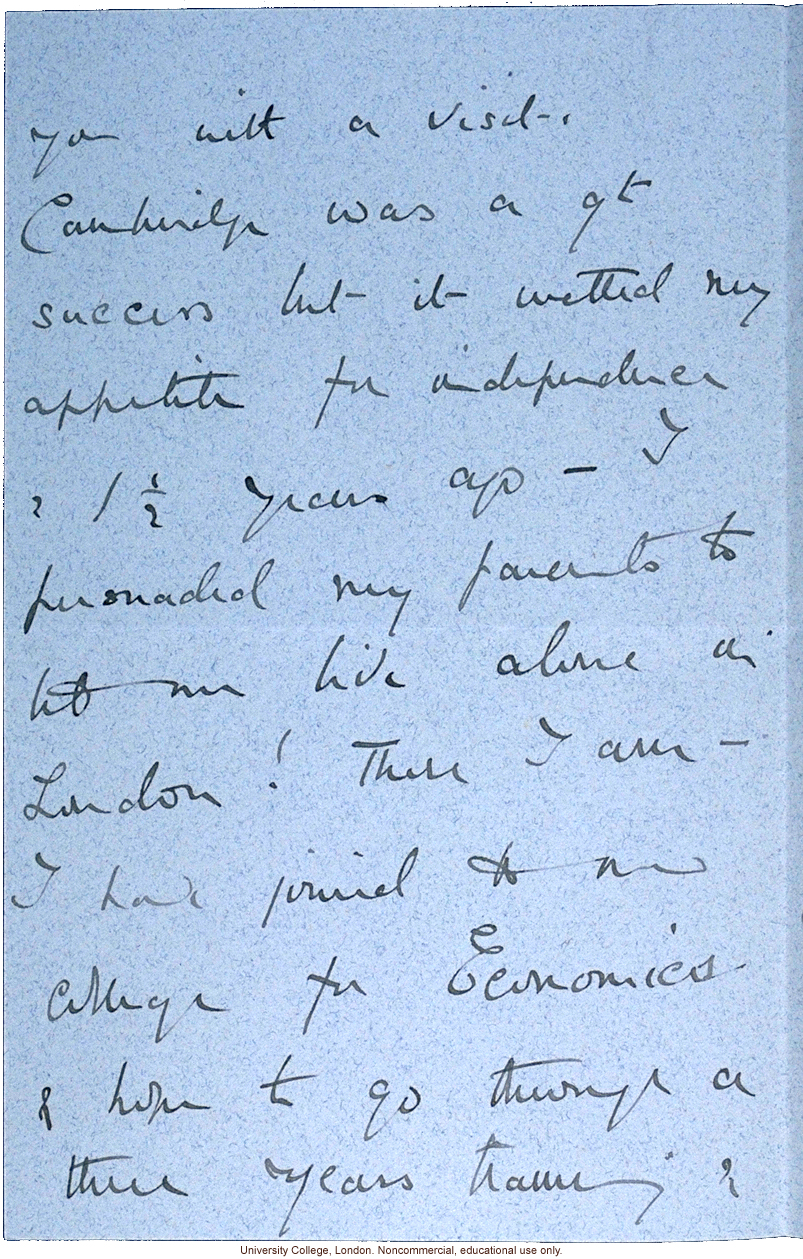 you with a visit.
Cambridge was a gt
success but it wetted my
appetite for independence
& 1½ years ago – I
persuaded my parents to
let me live alone in
London! There I am –
I have joined the new
college for Economics
& hope to go through a
three years training &
University College, London. Noncommercial, educational use only.